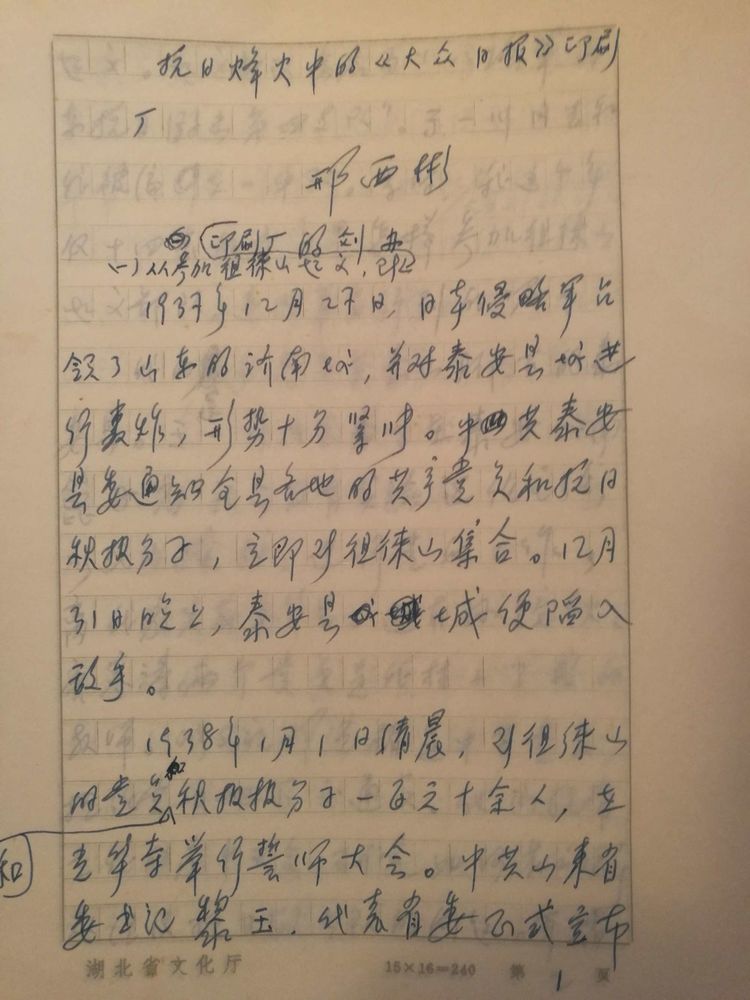 抗日烽火中的《大众日报》印刷
厂
邢西彬
印刷厂的创办
(一)从参加徂徕山起义,
1937年12月27日,日本侵略军占
领了山东的济南城,并对泰安县城进
行轰炸,形势十分紧冲。中共泰安
县委通知全县各地的共产党员和抗日
积极分子,立即到徂徕山集合。12月
31日晚上,泰安县城便陷入
敌手。
1938年1月1日清晨,到徂徕山
的党员和积极极分子一百六十余人,在
光华寺举行誓师大会。中共山东省
委书记黎玉,代表省委正式宣布
和
湖北省文化厅 15×16=240 第1页